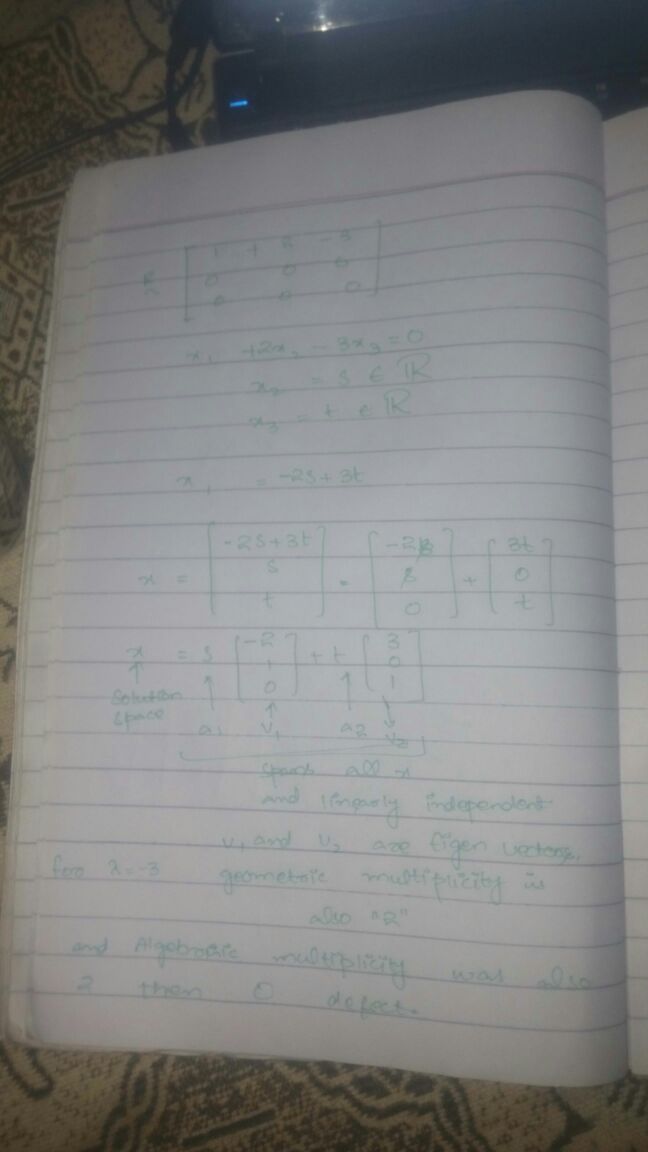 R [ 1 + 2 -3
0 0 0
0 0 0 ]
x₁ +2x₂ - 3x₃ = 0
x₂ = s ∈ ℝ
x₃ = t ∈ ℝ
x₁ = -2s + 3t
x = [ -2s+3t s t ] = [ -2s s 0 ] + [ 3t 0 t ]
x = s [ -2 1 0 ] + t [ 3 0 1 ]
↑ ↑ ↑ ↑ ↓
Solution
space
a₁ v₁ a₂ v₂
spans all x
and linearly independent
v₁ and v₂ are Eigen vectors,
for λ=-3 geometric multiplicity is
also "2"
and Algebraic multiplicity was also
2 then 0 defect.